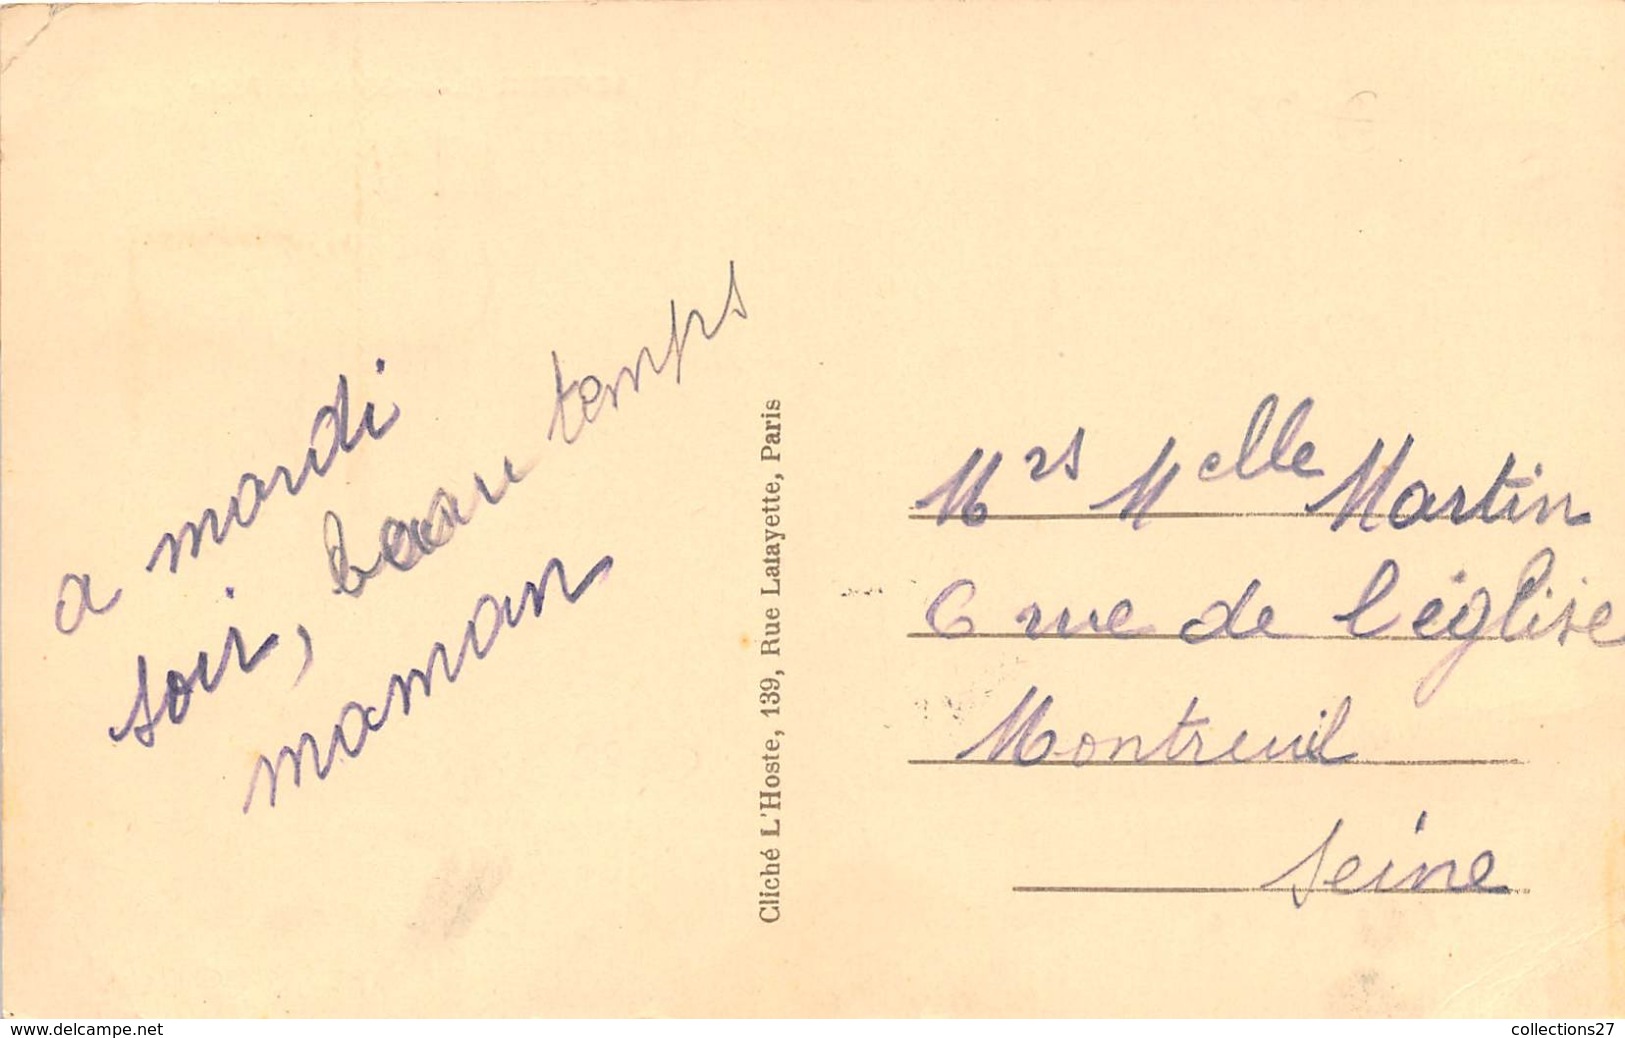 a mardi
soir, beau temps
maman
Cliché L'Hoste, 139, Rue Lafayette, Paris
Mrs Melle Martin
6 rue de l'église
Montreuil
Seine
www.delcampe.net
collections27